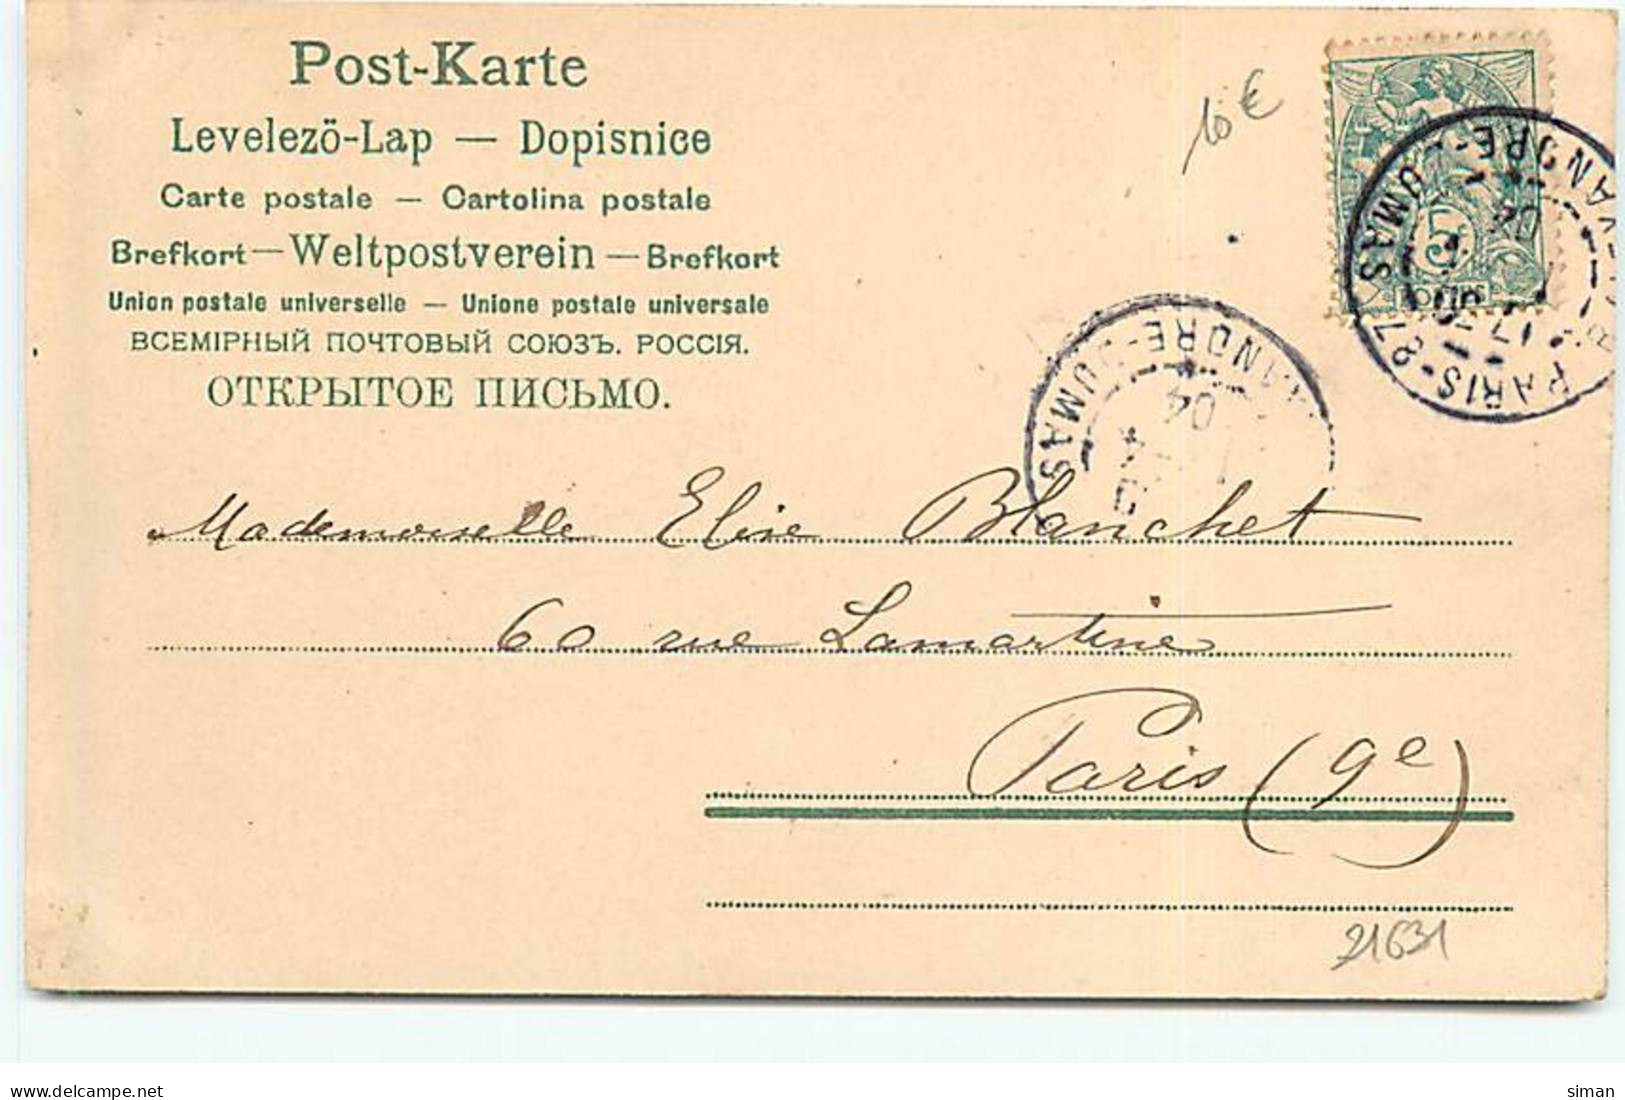 Post-Karte
Levelező-Lap — Dopisnice
Carte postale — Cartolina postale
Brefkort — Weltpostverein — Brefkort
Union postale universelle — Unione postale universale
ВСЕМІРНЫЙ ПОЧТОВЫЙ СОЮЗЪ. РОССІЯ.
ОТКРЫТОЕ ПИСЬМО.
10 €
5
PARIS-87
DUMAS
04
ANDRE-DUMAS
04
Mademoiselle Elise Blanchet
60 rue Lamartine
Paris (9e)
21631
delcampe.net
siman